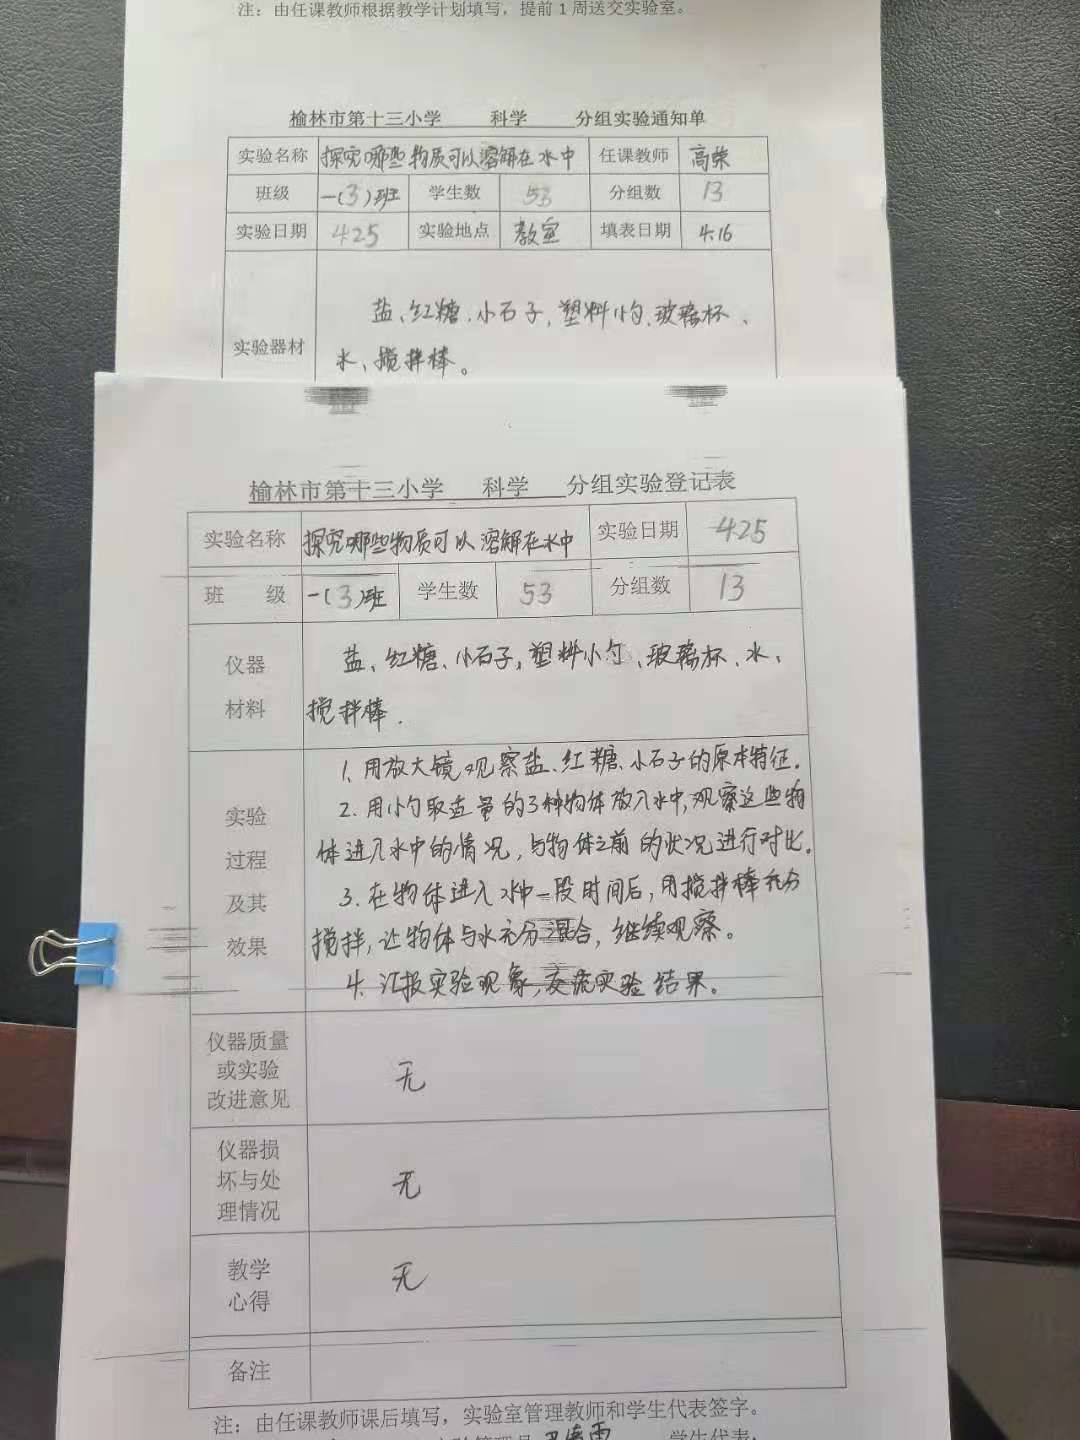 注：由任课教师根据教学计划填写，提前1周送交实验室。
榆林市第十三小学 科学 分组实验通知单
实验名称 探究哪些物质可以溶解在水中 任课教师 高荣
班级 一(3)班 学生数 53 分组数 13
实验日期 4.25 实验地点 教室 填表日期 4.16
盐、红糖、小石子、塑料小勺、玻璃杯、
实验器材
水、搅拌棒。
榆林市第十三小学 科学 分组实验登记表
实验名称 探究哪些物质可以溶解在水中 实验日期 4.25
班 级 一(3)班 学生数 53 分组数 13
仪器 盐、红糖、小石子、塑料小勺、玻璃杯、水、
材料 搅拌棒.
1、用放大镜观察盐、红糖、小石子的原本特征。
实验 2.用小勺取适量的3种物体放入水中,观察这些物
过程 体进入水中的情况，与物体之前的状况进行对比。
及其 3.在物体进入水中一段时间后，用搅拌棒充分
效果 搅拌，让物体与水充分混合，继续观察。
4.汇报实验现象，交流实验结果。
仪器质量
或实验 无
改进意见
仪器损
坏与处 无
理情况
教学 无
心得
备注
注：由任课教师课后填写，实验室管理教师和学生代表签字。
学生代表: